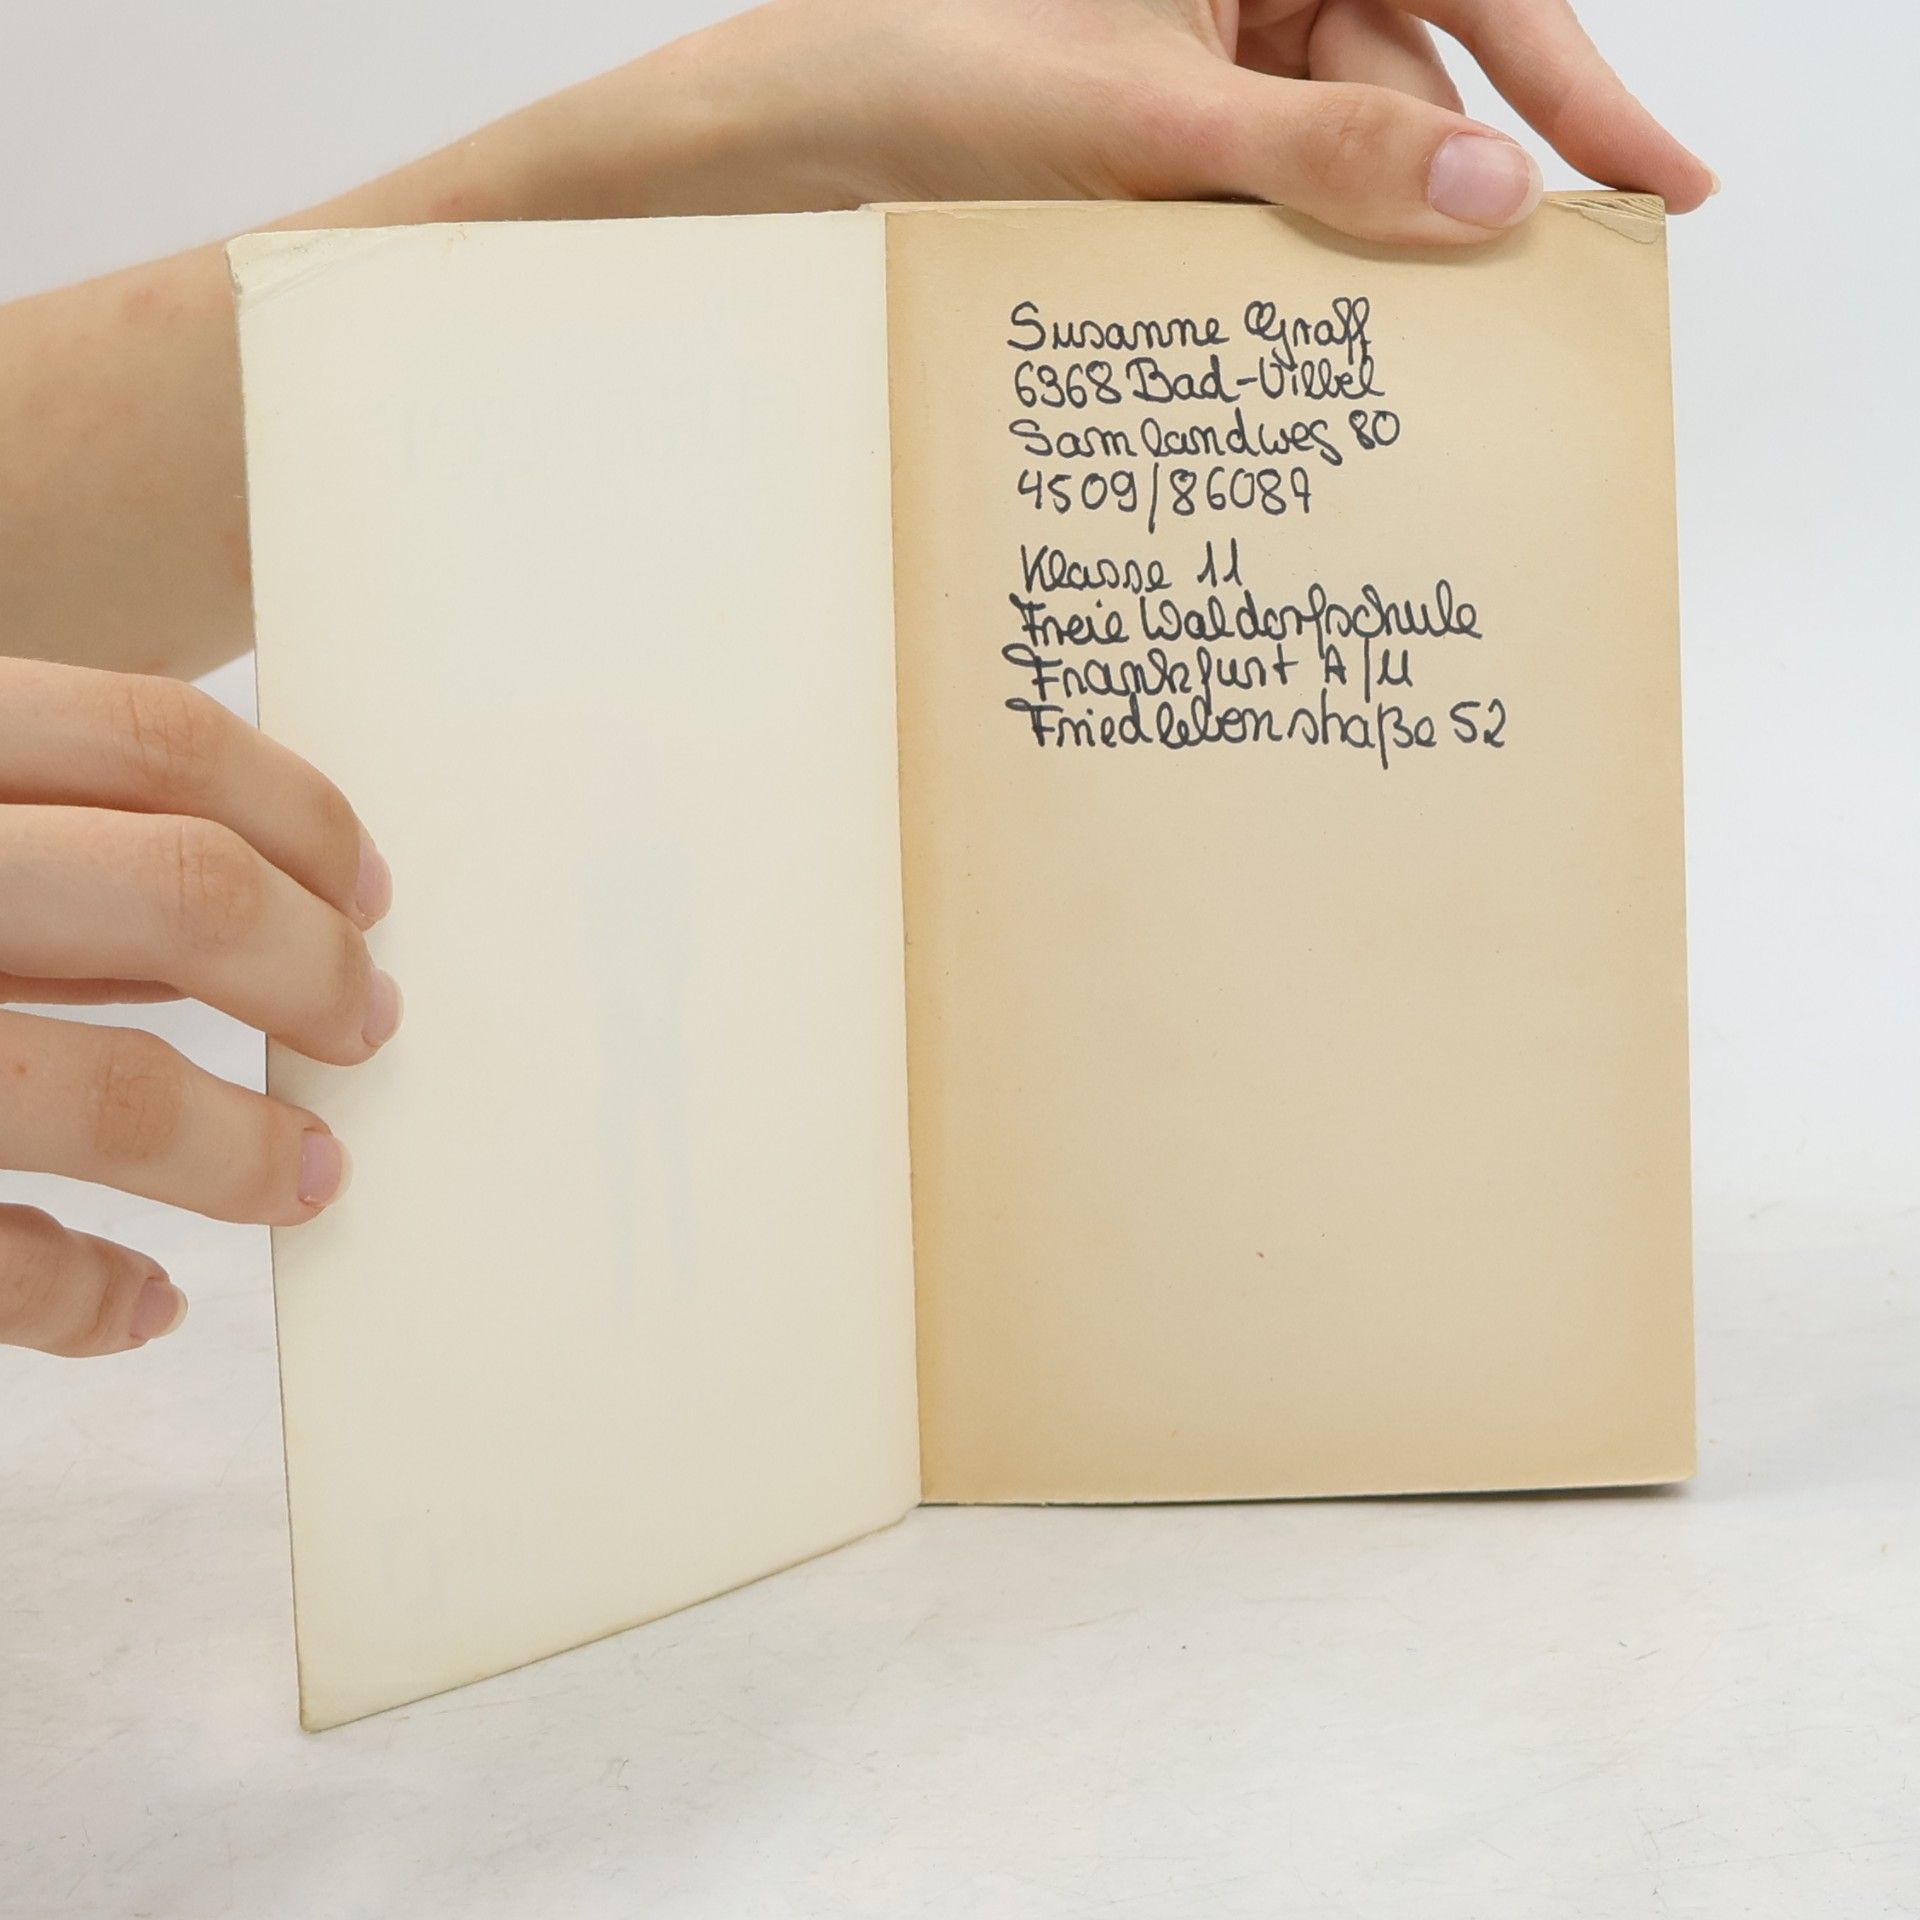 Susanne Graff
6368 Bad-Vilbel
Samlandweg 80
4509/86087
Klasse 11
Freie Waldorfschule
Frankfurt A/M
Friedlebenstraße 52